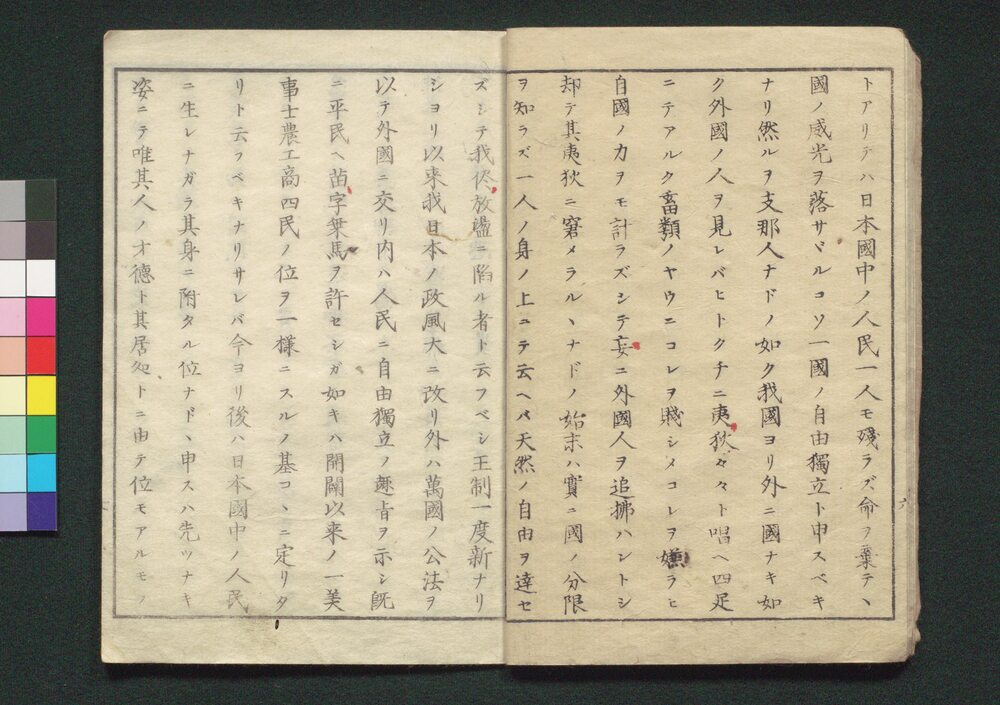 トアリテハ日本國中ノ人民一人モ殘ラズ命ヲ棄テヽ
國ノ威光ヲ落サヾルコソ一國ノ自由獨立ト申スベキ
ナリ然ルヲ支那人ナドノ如ク我國ヨリ外ニ國ナキ如
ク外國ノ人ヲ見レバヒトクチニ夷狄々々ト唱ヘ四足
ニテアルク畜類ノヤウニコレヲ賤シメコレヲ嫌ラヒ
自國ノ力ヲモ計ラズシテ妄ニ外國人ヲ追拂ハントシ
却テ其夷狄ニ窘メラルヽナドノ始末ハ實ニ國ノ分限
ヲ知ラズ一人ノ身ノ上ニテ云ヘバ天然ノ自由ヲ達セ
ズシテ我侭放盪ニ陷ル者ト云フベシ王制一度新ナリ
シヨリ以来我日本ノ政風大ニ改リ外ハ萬國ノ公法ヲ
以テ外國ニ交リ内ハ人民ニ自由獨立ノ趣旨ヲ示シ既
ニ平民ヘ苗字乗馬ヲ許セシガ如キハ開闢以来ノ一美
事士農工商四民ノ位ヲ一様ニスルノ基コヽニ定リタ
リト云フベキナリサレバ今ヨリ後ハ日本國中ノ人民
ニ生レナガラ其身ニ附タル位ナドヽ申スハ先ツナキ
姿ニテ唯其人ノ才德ト其居処トニ由テ位モアルモノ
六